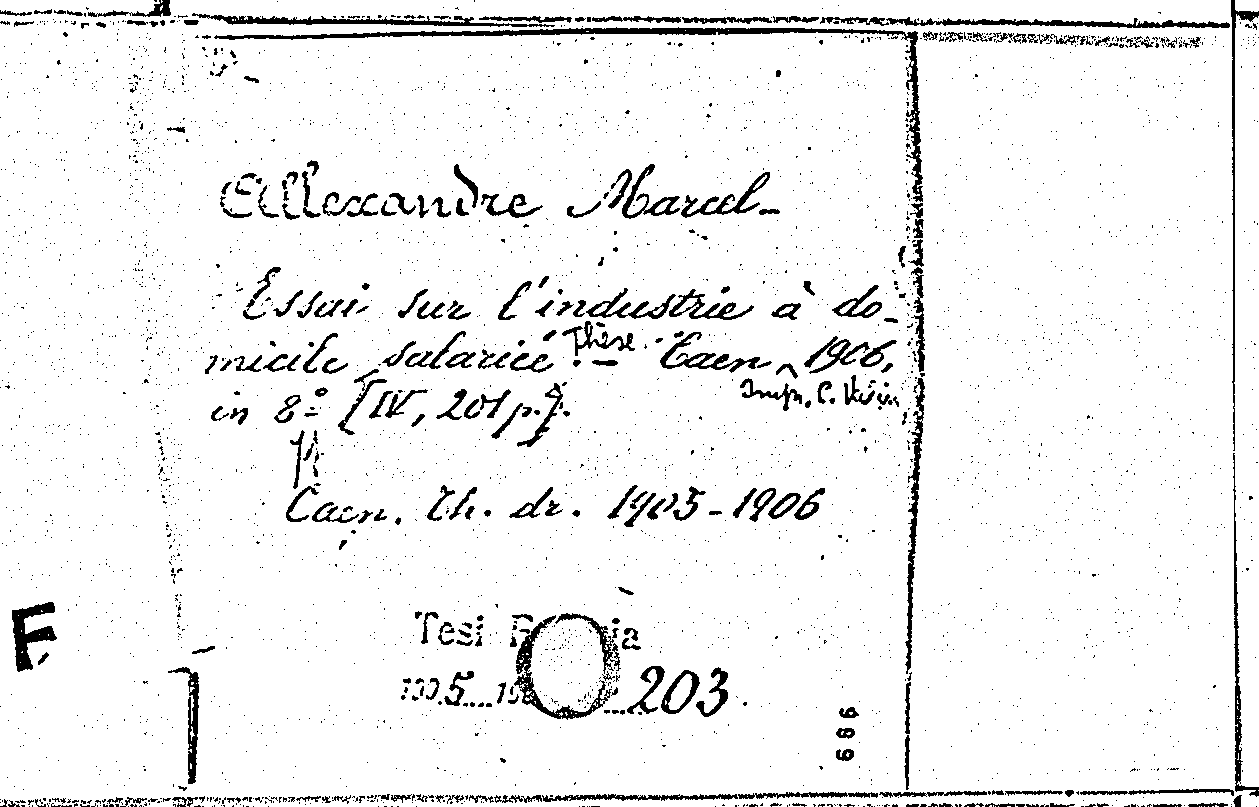 Allexandre Marcel_
Essai sur l'industrie à do_
micile salarié. Thèse. — Caen, 1906,
Imp. C. Valin
in 8º [IV, 201 p.].
Caen. Th. dr. 1905-1906
Tesi
5 203
999
F